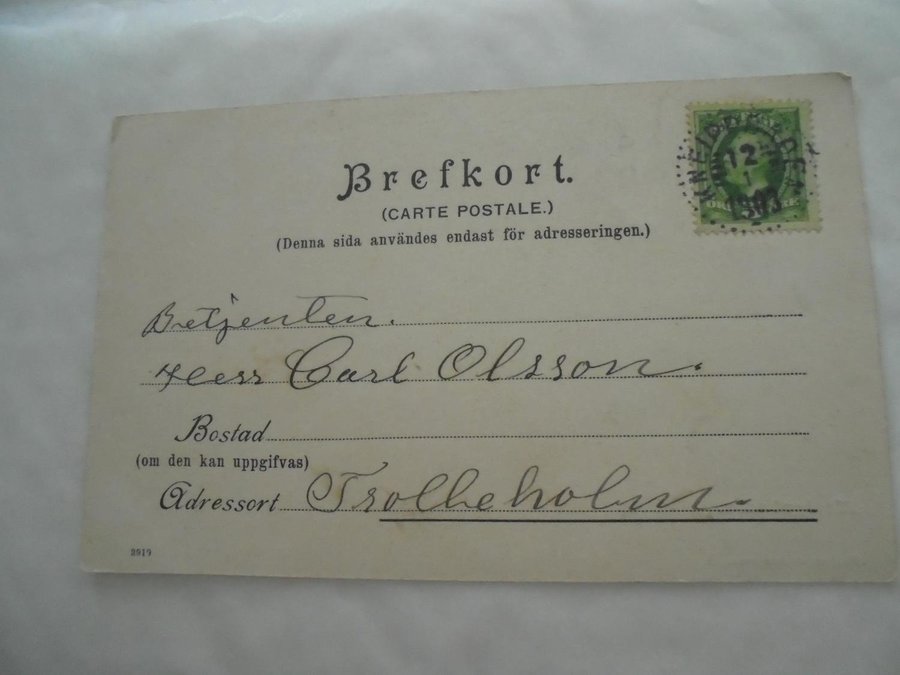 Brefkort.
(CARTE POSTALE.)
(Denna sida användes endast för adresseringen.)
12
1
1903
Betjenten.
Herr Carl Olsson.
Bostad
(om den kan uppgifvas)
Adressort Trolleholm.
3919